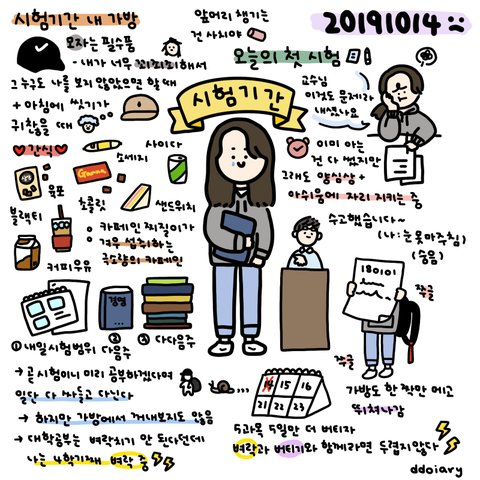 시험기간 내 가방
모자는 필수품
- 내가 너무 꾀죄죄해서
그 누구도 나를 보지 않았으면 할 때
+ 아침에 씻기가
귀찮을 때
♥간식♥
육포
소세지
사이다
Gana
초콜릿
샌드위치
블랙티
커피우유
카페인 찌질이가
겨우 섭취하는
극소량의 카페인
경영
① 내일 시험범위
② 다음주
③ 다다음주
→ 곧 시험이니 미리 공부하겠다며
일단 다 싸들고 다닌다
→ 하지만 가방에서 꺼내보지도 않음
→ 대학공부는 벼락치기 안 된다던데
나는 4학기째 벼락 중
앞머리 챙기는
건 사치야
시험기간
20191014
오늘의 첫 시험
교수님
이것도 문제라
내셨나요
이미 아는
건 다 썼지만
그래도 양심상 +
아쉬움에 자리 지키는 중
수고했습니다~
(나 : 눈 못마주침)
(웅웅)
180101
쭈글
쭈글
가방도 한 짝만 메고
뛰쳐나감
14 15 16
21 22 23
5과목 5일만 더 버티자
벼락과 버티기와 함께라면 두렵지않다
ddoiary